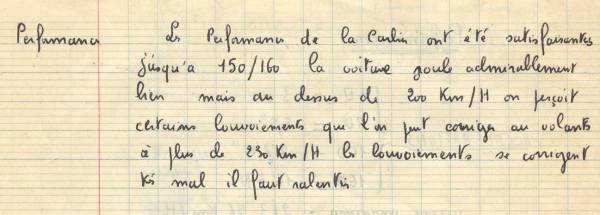 Performances Les Performances de la Carlin ont été satisfaisantes
jusqu'a 150/160 la voiture roule admirablement
bien mais au dessus de 200 Km/H on perçoit
certains louvoiements que l'on peut corriger au volant
à plus de 230 Km/H les louvoiements se corrigent
très mal il faut ralentir